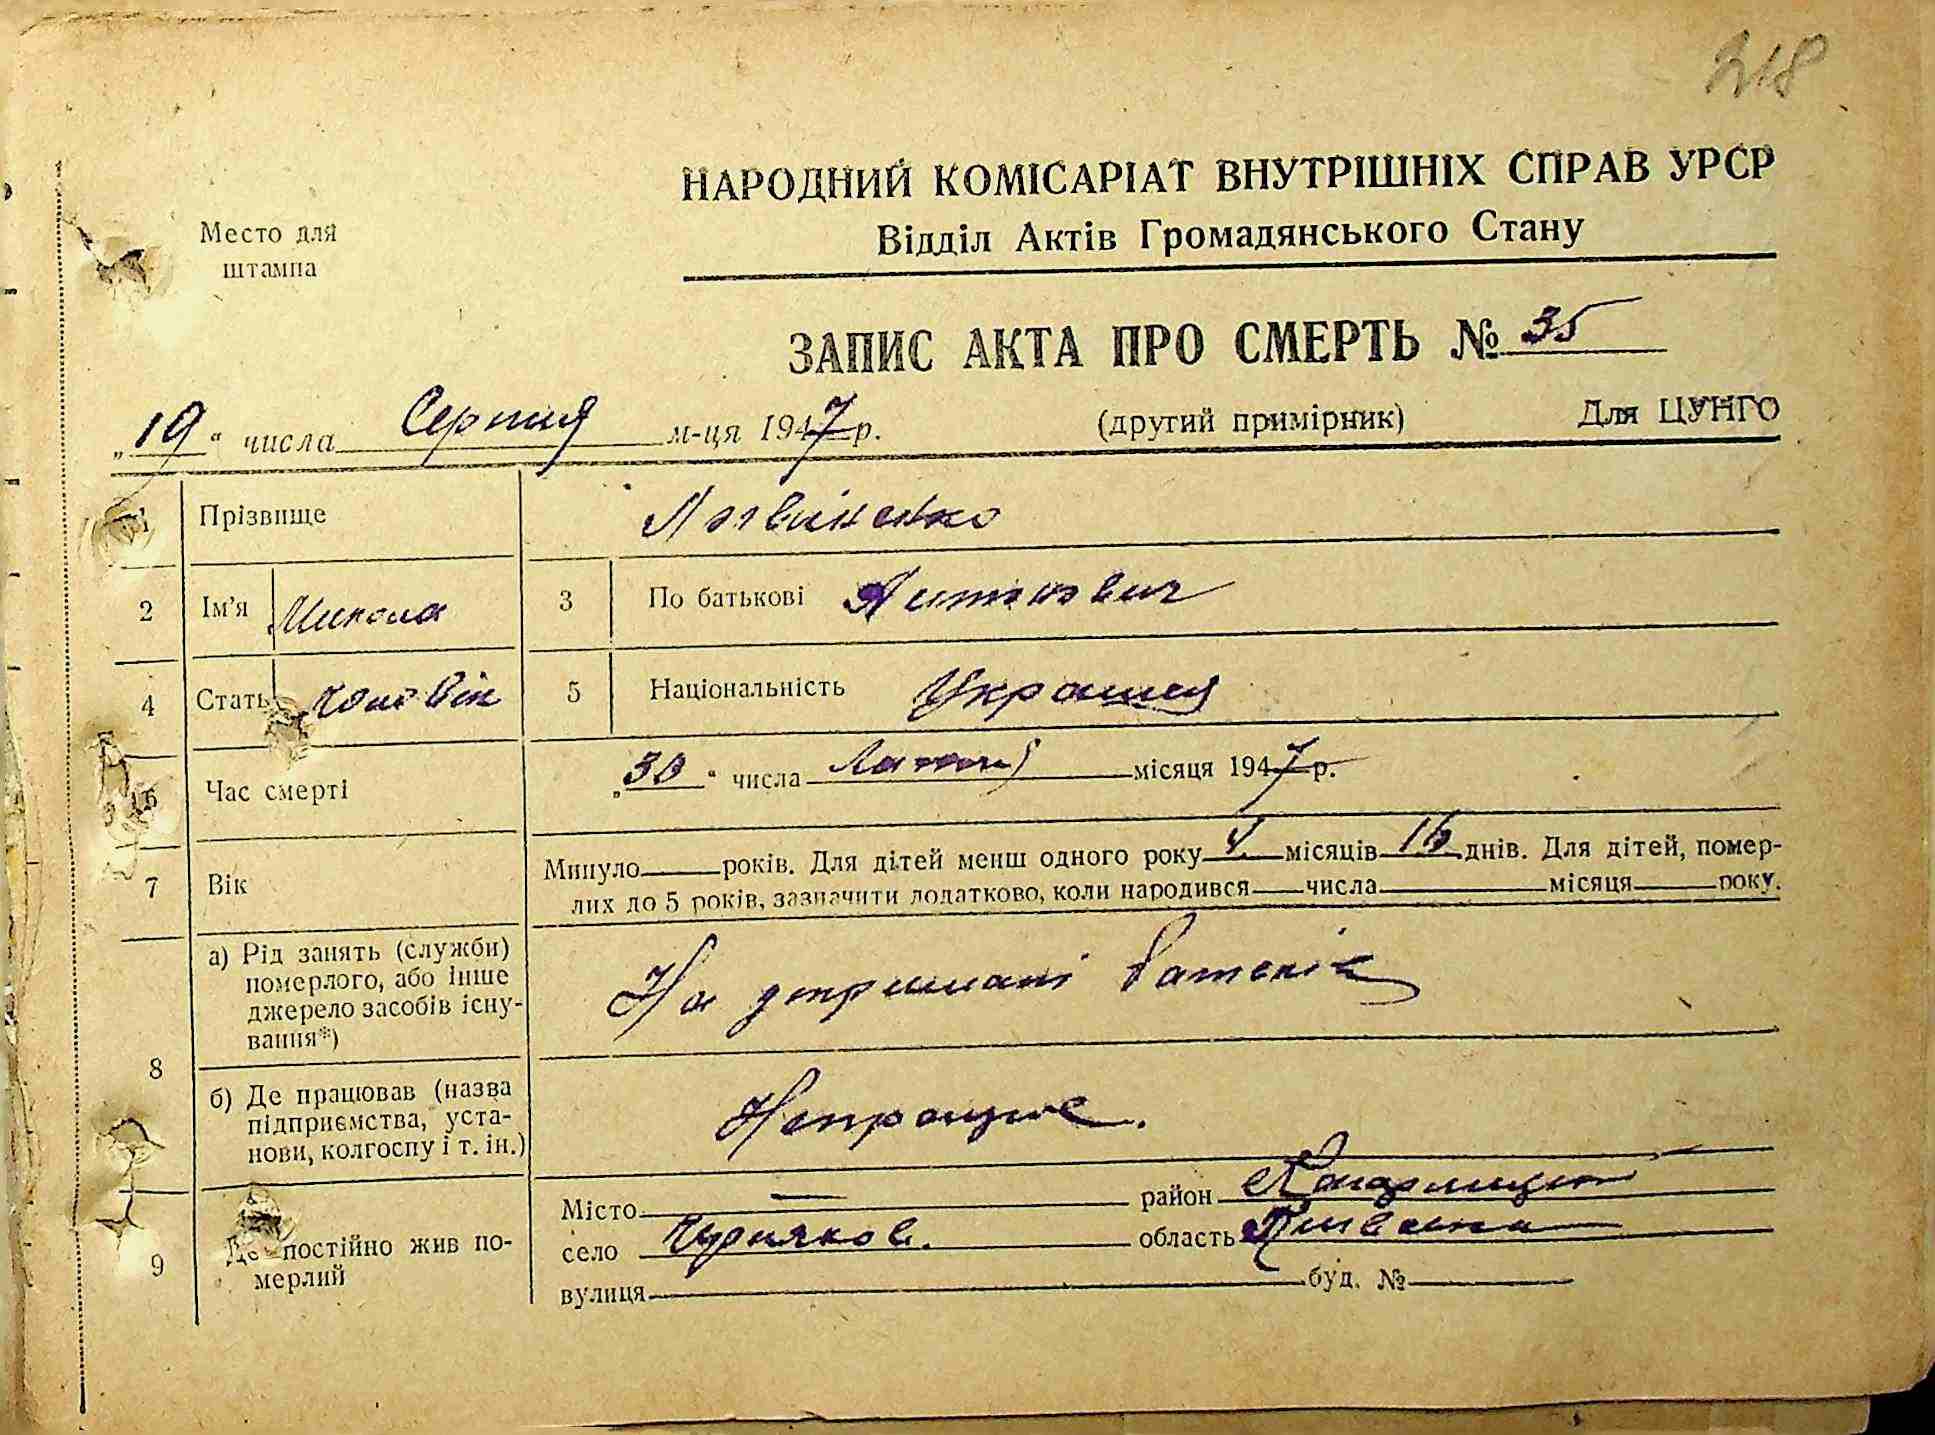 218
НАРОДНИЙ КОМІСАРІАТ ВНУТРІШНІХ СПРАВ УРСР
Место для штампа
Відділ Актів Громадянського Стану
ЗАПИС АКТА ПРО СМЕРТЬ № 35
„19“ числа Серпня м-ця 1947 р. (другий примірник) Для ЦУНГО
1 Прізвище Логвіненко
2 Ім'я Микола 3 По батькові Антонович
4 Стать чоловік 5 Національність
Час смерті „30“ числа місяця 1947 р.
7 Вік Минуло років. Для дітей менш одного року 4 місяців 16 днів. Для дітей, помер-
лих до 5 років, зазначити додатково, коли народився числа місяця року.
8 а) Рід занять (служби)
померлого, або інше
джерело засобів існу-
вання*)
На утриманні батьків
б) Де працював (назва
підприємства, уста-
нови, колгоспу і т. ін.)
Непрацює.
9 Де постійно жив по-
мерлий
Місто — район
село область
вулиця буд. №